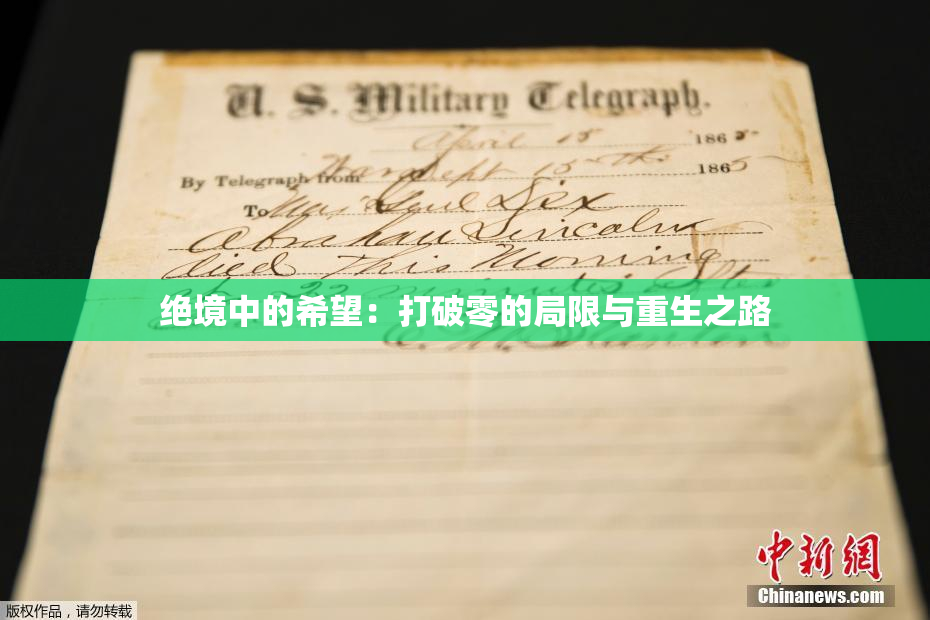 U. S. Military Telegraph.
April 15 1865
By Telegraph from War Dept 15th 1865
To Maj Genl Dix
Abraham Lincoln
died This Morning
at 22 minutes after
绝境中的希望：打破零的局限与重生之路
E. M. Stanton
中新网
Chinanews.com
版权作品，请勿转载